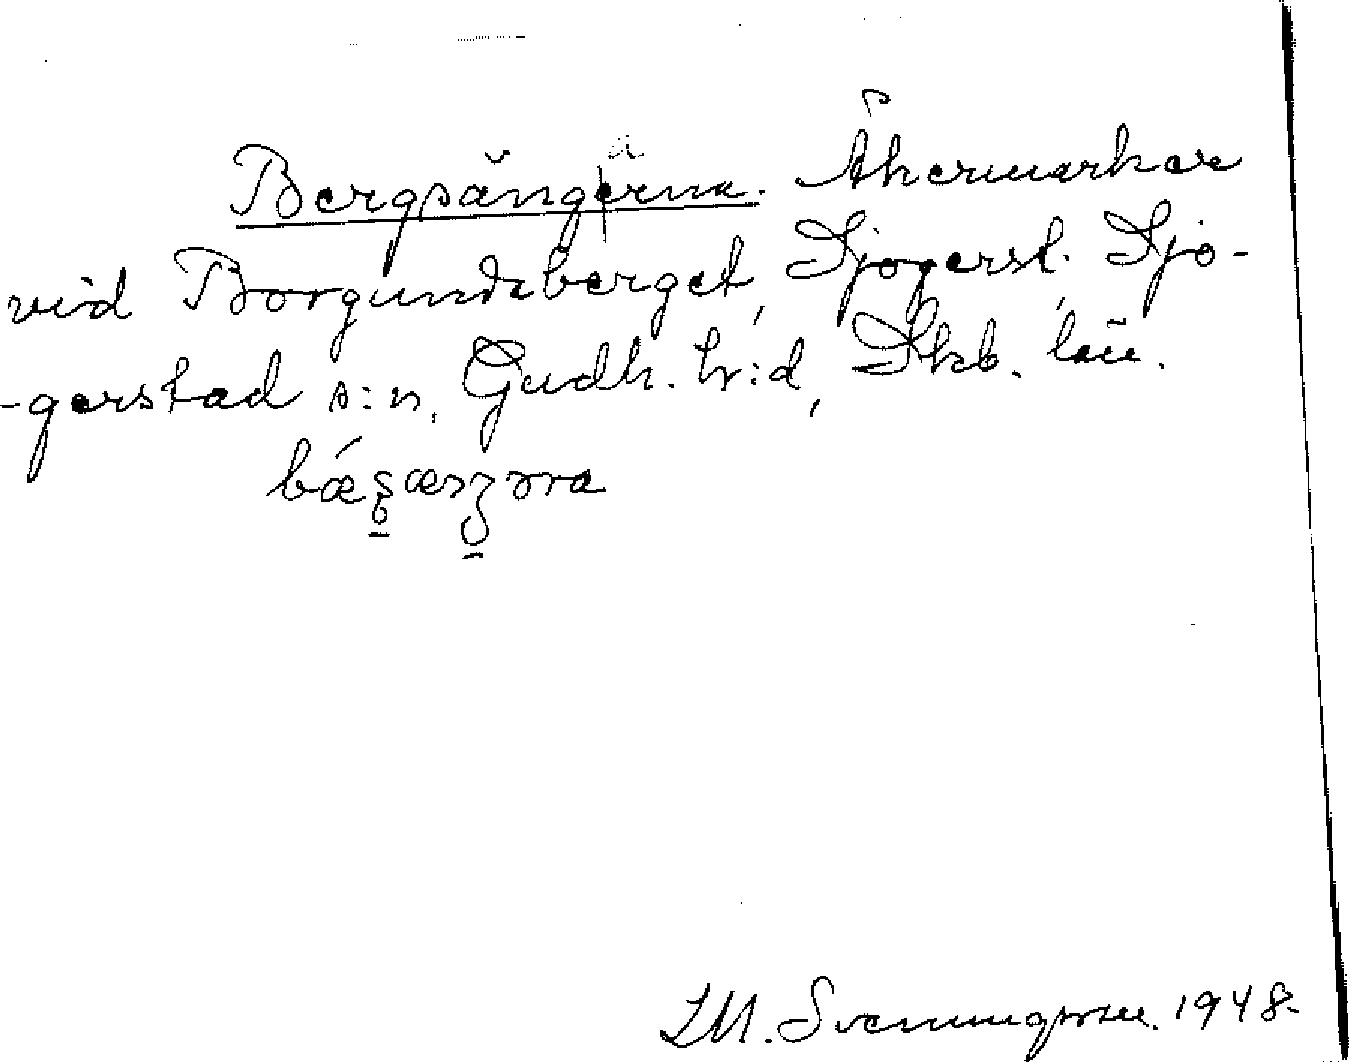 Bergsängerna. Åkermarker
vid Borgundaberget, Sjögerst. Sjö-
-gerstad s:n, Gudh. h:d, Skb. län.
L.M. Svenungsson. 1948.